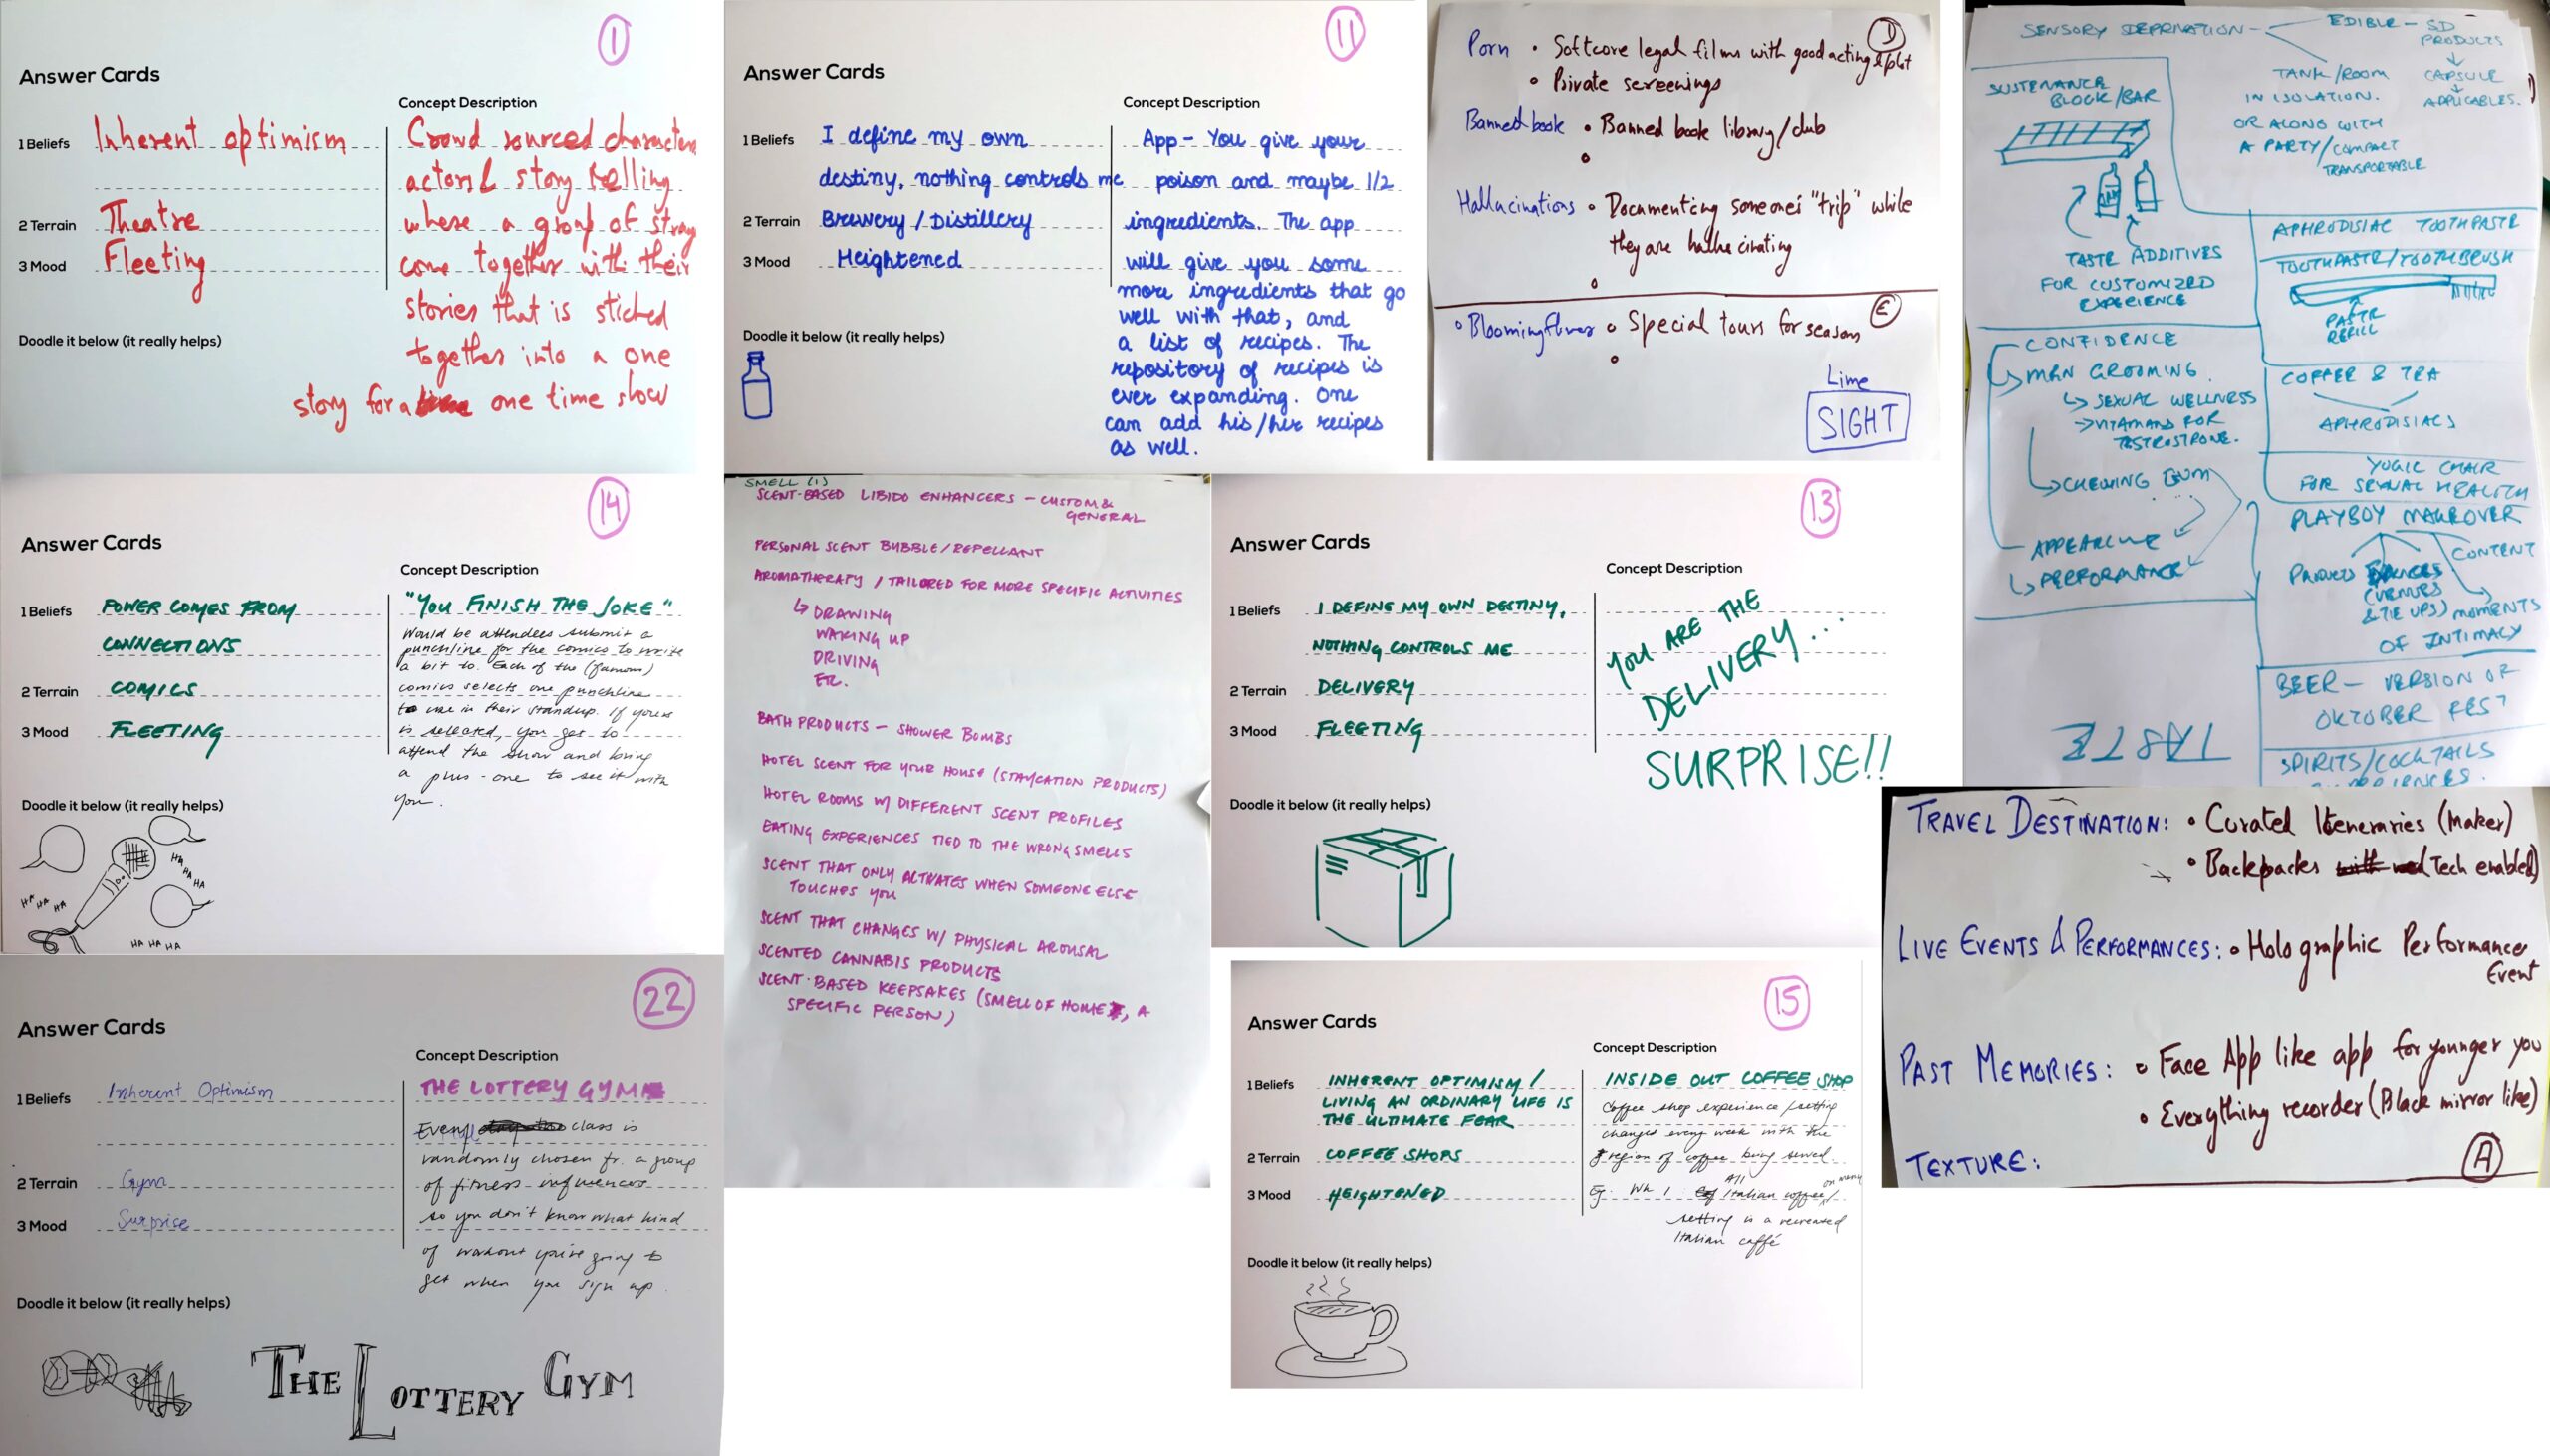 1
Answer Cards
Concept Description
1 Beliefs Inherent optimism
2 Terrain Theatre
3 Mood Fleeting
Crowd sourced characters
actors & story telling
where a group of strang
come together with their
stories that is stiched
together into a one
story for a one time show
Doodle it below (it really helps)
11
Answer Cards
Concept Description
1 Beliefs I define my own
destiny, nothing controls me
2 Terrain Brewery / Distillery
3 Mood Heightened
App - You give your
poison and maybe 1/2
ingredients. The app
will give you some
more ingredients that go
well with that, and
a list of recipes. The
repository of recipes is
ever expanding. One
can add his/her recipes
as well.
Doodle it below (it really helps)
D
Porn • Softcore legal films with good acting & plot
• Private screenings
Banned book • Banned book library/club
Hallucinations • Documenting someone's "trip" while
they are hallucinating
E
• Blooming flower • Special tours for seasons
Lime
SIGHT
SENSORY DEPRIVATION — EDIBLE — SD
PRODUCTS
CAPSULE
APPLICABLES.
TANK/ROOM
IN ISOLATION.
OR ALONG WITH
A PARTY/COMPACT
TRANSPORTABLE
SUSTENANCE
BLOCK/BAR
TASTE ADDITIVES
FOR CUSTOMIZED
EXPERIENCE
APHRODISIAC TOOTHPASTE
TOOTHPASTE/TOOTHBRUSH
PASTE
REFILL
CONFIDENCE
MEN GROOMING
SEXUAL WELLNESS
VITAMINS FOR
TESTROSTRONE.
CHEWING GUM
APPEARANCE
PERFORMANCE
COFFEE & TEA
APHRODISIACS
YOGIC CHAIR
FOR SEXUAL HEALTH
PLAYBOY MAKEOVER
CONTENT
PRODUCTS
(VENUES
& TIE UPS)
MOMENTS
OF INTIMACY
BEER — VERSION OF
OKTOBER FEST
SPIRITS/COCKTAILS
TASTE
14
Answer Cards
Concept Description
1 Beliefs POWER COMES FROM
CONNECTIONS
2 Terrain COMICS
3 Mood FLEETING
"YOU FINISH THE JOKE"
Would be attendees submit a
punchline for the comics to write
a bit to. Each of the (famous)
comics selects one punchline
to use in their standup. If yours
is selected, you get to
attend the show and bring
a plus-one to see it with
you.
Doodle it below (it really helps)
HA HA HA
HA HA HA HA
HA HA HA
SMELL (1)
SCENT-BASED LIBIDO ENHANCERS — CUSTOM &
GENERAL
PERSONAL SCENT BUBBLE/REPELLANT
AROMATHERAPY / TAILORED FOR MORE SPECIFIC ACTIVITIES
DRAWING
WAKING UP
DRIVING
ETC.
BATH PRODUCTS — SHOWER BOMBS
HOTEL SCENT FOR YOUR HOUSE (STAYCATION PRODUCTS)
HOTEL ROOMS W/ DIFFERENT SCENT PROFILES
EATING EXPERIENCES TIED TO THE WRONG SMELLS
SCENT THAT ONLY ACTIVATES WHEN SOMEONE ELSE
TOUCHES YOU
SCENT THAT CHANGES W/ PHYSICAL AROUSAL
SCENTED CANNABIS PRODUCTS
SCENT-BASED KEEPSAKES (SMELL OF HOME, A
SPECIFIC PERSON)
13
Answer Cards
Concept Description
1 Beliefs I DEFINE MY OWN DESTINY,
NOTHING CONTROLS ME
2 Terrain DELIVERY
3 Mood FLEETING
YOU ARE THE
DELIVERY...
SURPRISE!!
Doodle it below (it really helps)
TRAVEL DESTINATION: • Curated Iteneraries (Maker)
• Backpacks Tech enabled)
LIVE EVENTS & PERFORMANCES: • Holographic Performance
Event
PAST MEMORIES: • Face App like app for younger you
• Everything recorder (Black mirror like)
TEXTURE:
A
22
Answer Cards
Concept Description
1 Beliefs Inherent Optimism
2 Terrain Gym
3 Mood Surprise
THE LOTTERY GYM
Every class is
randomly chosen fr. a group
of fitness influencers
so you don't know what kind
of workout you're going to
get when you sign up.
Doodle it below (it really helps)
THE LOTTERY GYM
15
Answer Cards
Concept Description
1 Beliefs INHERENT OPTIMISM /
LIVING AN ORDINARY LIFE IS
THE ULTIMATE FEAR
2 Terrain COFFEE SHOPS
3 Mood HEIGHTENED
INSIDE OUT COFFEE SHOP
Coffee shop experience/setting
changes every week with the
region of coffee being served.
Eg. Wk 1 : All Italian coffee on menu/
setting is a recreated
Italian caffé
Doodle it below (it really helps)